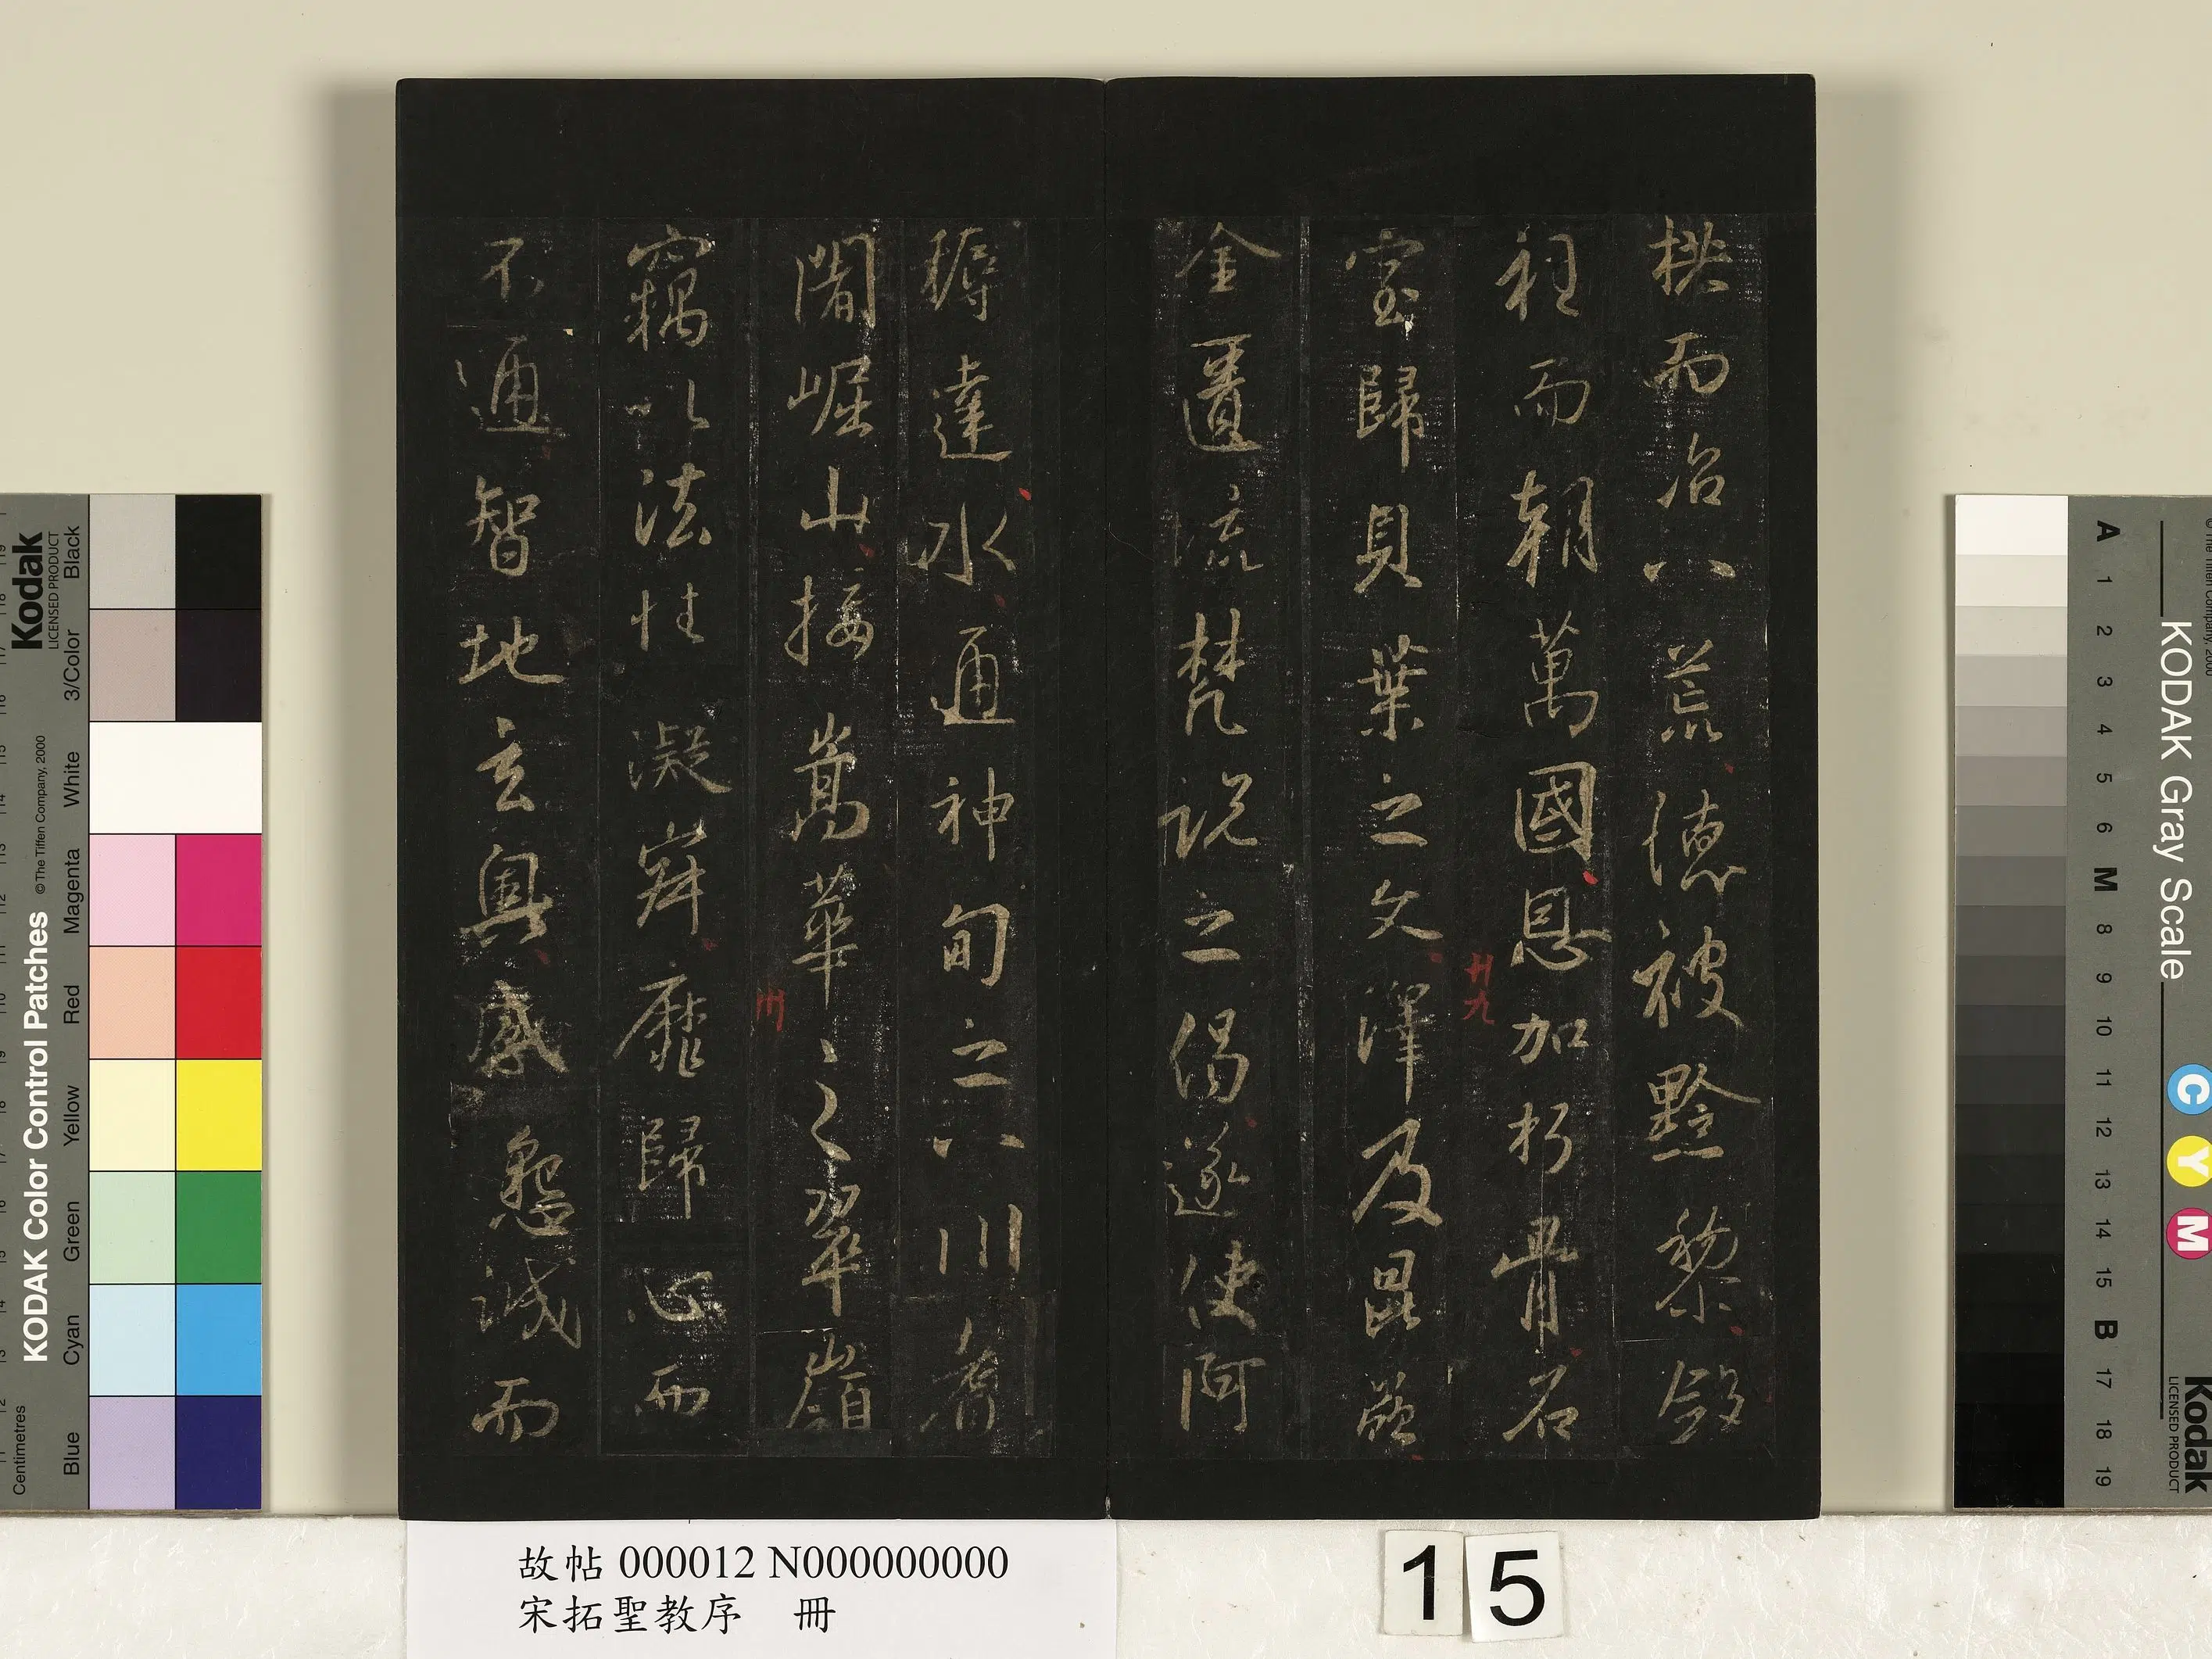 拱而治八荒德被黔黎斂
衽而朝萬國恩加朽骨石
室歸貝葉之文澤及昆蟲
金匱流梵說之偈遂使阿
耨達水通神甸之八川耆
闍崛山接嵩華之翠嶺
竊以法性凝寂靡歸心而
不通智地玄奧感懇誠而
廿九
卅
故帖 000012 N000000000
宋拓聖教序 冊
15
Kodak
LICENSED PRODUCT
KODAK Color Control Patches
© The Tiffen Company, 2000
Centimetres
Blue
Cyan
Green
Yellow
Red
Magenta
White
3/Color
Black
KODAK Gray Scale
A 1 2 3 4 5 6 M 8 9 10 11 12 13 14 15 B 17 18 19
C Y M
Kodak
LICENSED PRODUCT